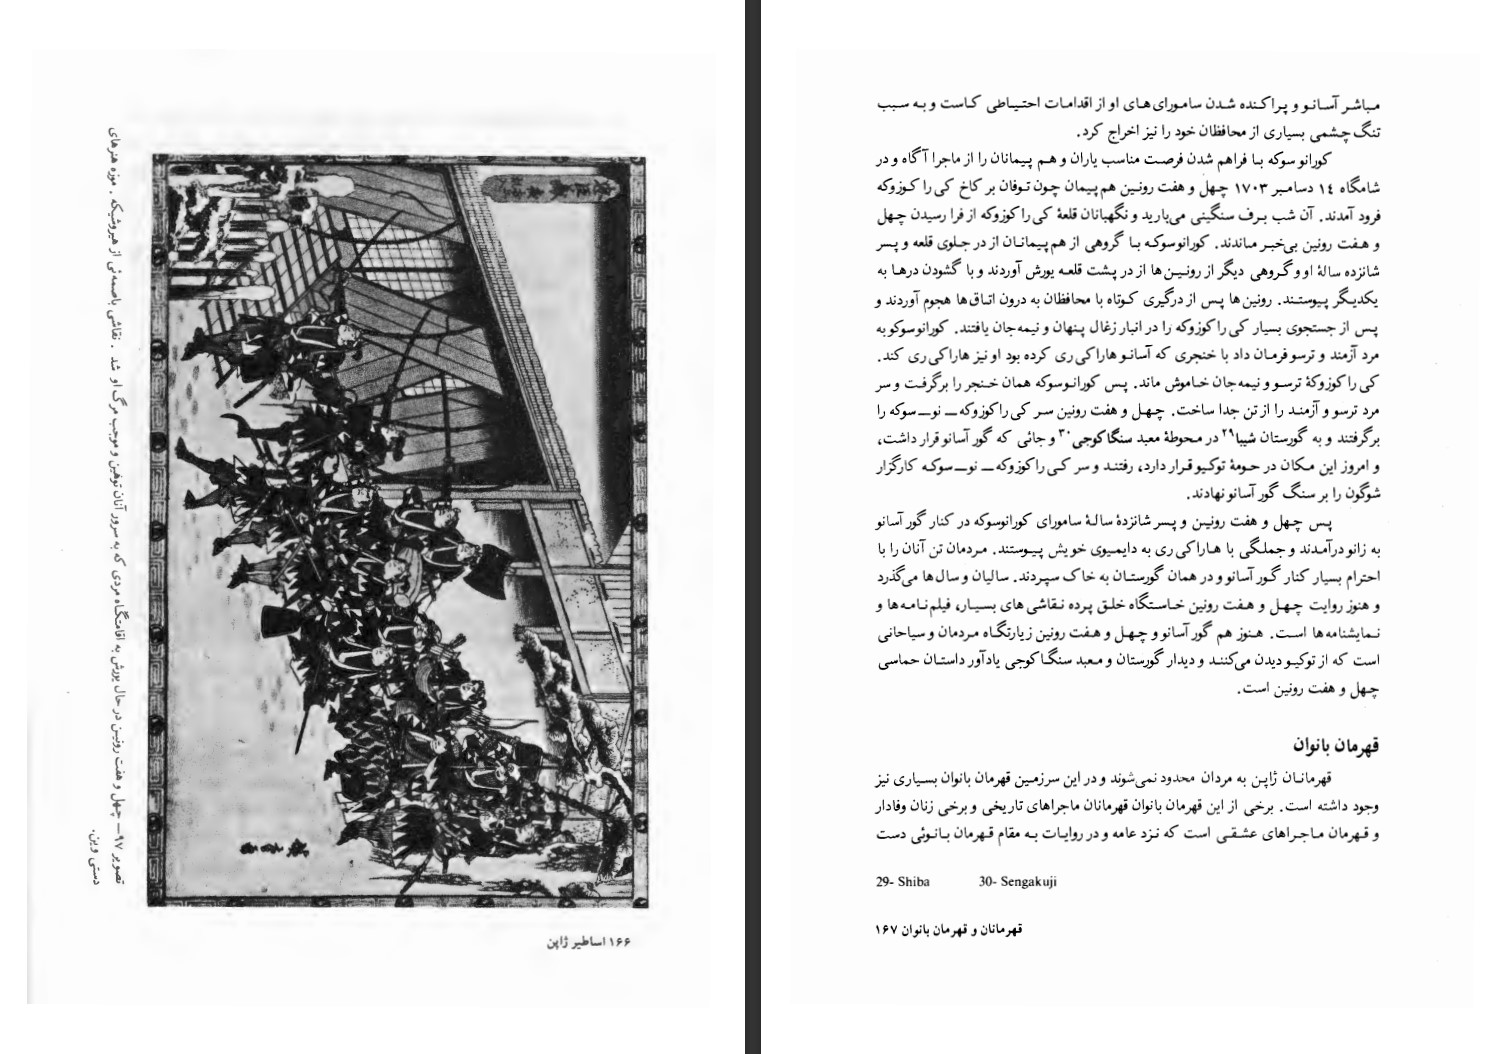 تصویر ۹۷ــ چهل و هفت رونین در حال یورش به اقامتگاه مردی که به سرور آنان توهین و موجب مرگ او شد . نقاشی باصمه‌ئی از هیروشیگه . موزه هنرهای
دستی وین.
۱۶۶ اساطیر ژاپن
مباشر آسانو و پراکنده شدن سامورای‌های او از اقدامات احتیاطی کاست و به سبب
تنگ چشمی بسیاری از محافظان خود را نیز اخراج کرد.
کورانوسوکه با فراهم شدن فرصت مناسب یاران و هم پیمانان را از ماجرا آگاه و در
شامگاه ۱۴ دسامبر ۱۷۰۳ چهل و هفت رونین هم پیمان چون توفان بر کاخ کی را کوزوکه
فرود آمدند. آن شب برف سنگینی می‌بارید و نگهبانان قلعهٔ کی را کوزوکه از فرا رسیدن چهل
و هفت رونین بی‌خبر ماندند. کورانوسوکه با گروهی از هم پیمانان از در جلوی قلعه و پسر
شانزده سالهٔ او و گروهی دیگر از رونین‌ها از در پشت قلعه یورش آوردند و با گشودن درها به
یکدیگر پیوستند. رونین‌ها پس از درگیری کوتاه با محافظان به درون اتاق‌ها هجوم آوردند و
پس از جستجوی بسیار کی را کوزوکه را در انبار زغال پنهان و نیمه‌جان یافتند. کورانوسوکو به
مرد آزمند و ترسو فرمان داد با خنجری که آسانو هاراکی ری کرده بود او نیز هاراکی ری کند.
کی را کوزوکهٔ ترسو و نیمه‌جان خاموش ماند. پس کورانوسوکه همان خنجر را برگرفت و سر
مرد ترسو و آزمند را از تن جدا ساخت. چهل و هفت رونین سر کی را کوزوکه ــ نوــ سوکه را
برگرفتند و به گورستان شیبا۲۹ در محوطهٔ معبد سنگاکوجی۳۰ و جائی که گور آسانو قرار داشت،
و امروز این مکان در حومهٔ توکیو قرار دارد، رفتند و سر کی را کوزوکه ــ نوــ سوکه کارگزار
شوگون را بر سنگ گور آسانو نهادند.
پس چهل و هفت رونین و پسر شانزدهٔ سالهٔ سامورای کورانوسوکه در کنار گور آسانو
به زانو درآمدند و جملگی با هاراکی ری به دایمیوی خویش پیوستند. مردمان تن آنان را با
احترام بسیار کنار گور آسانو و در همان گورستان به خاک سپردند. سالیان و سال‌ها می‌گذرد
و هنوز روایت چهل و هفت رونین خاستگاه خلق پرده نقاشی های بسیار، فیلم‌نامه‌ها و
نمایشنامه‌ها است. هنوز هم گور آسانو و چهل و هفت رونین زیارتگاه مردمان و سیاحانی
است که از توکیو دیدن می‌کنند و دیدار گورستان و معبد سنگاکوجی یادآور داستان حماسی
چهل و هفت رونین است.
قهرمان بانوان
قهرمانان ژاپن به مردان محدود نمی‌شوند و در این سرزمین قهرمان بانوان بسیاری نیز
وجود داشته است. برخی از این قهرمان بانوان قهرمانان ماجراهای تاریخی و برخی زنان وفادار
و قهرمان ماجراهای عشقی است که نزد عامه و در روایات به مقام قهرمان بانوئی دست
29- Shiba 30- Sengakuji
قهرمانان و قهرمان بانوان ۱۶۷